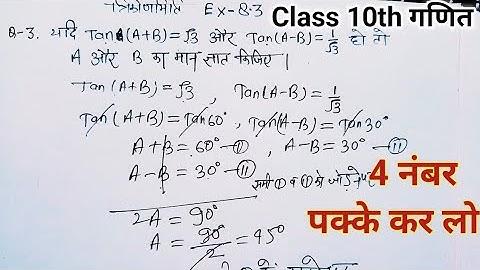 त्रिकोणमिति Ex-8.3
Class 10th गणित
Q-3. यदि Tan(A+B)=√3 और Tan(A-B)=1/√3 हो तो
A और B का मान ज्ञात किजिए।
Tan(A+B)=√3 , Tan(A-B)=1/√3
Tan(A+B)=Tan60° , Tan(A-B)=Tan30°
A+B=60° -① , A-B=30° -⑪
A-B=30° -⑪
समी ① व ⑪ को जोड़ने पर
2A=90°
A=90°/2=45°
4 नंबर
पक्के कर लो